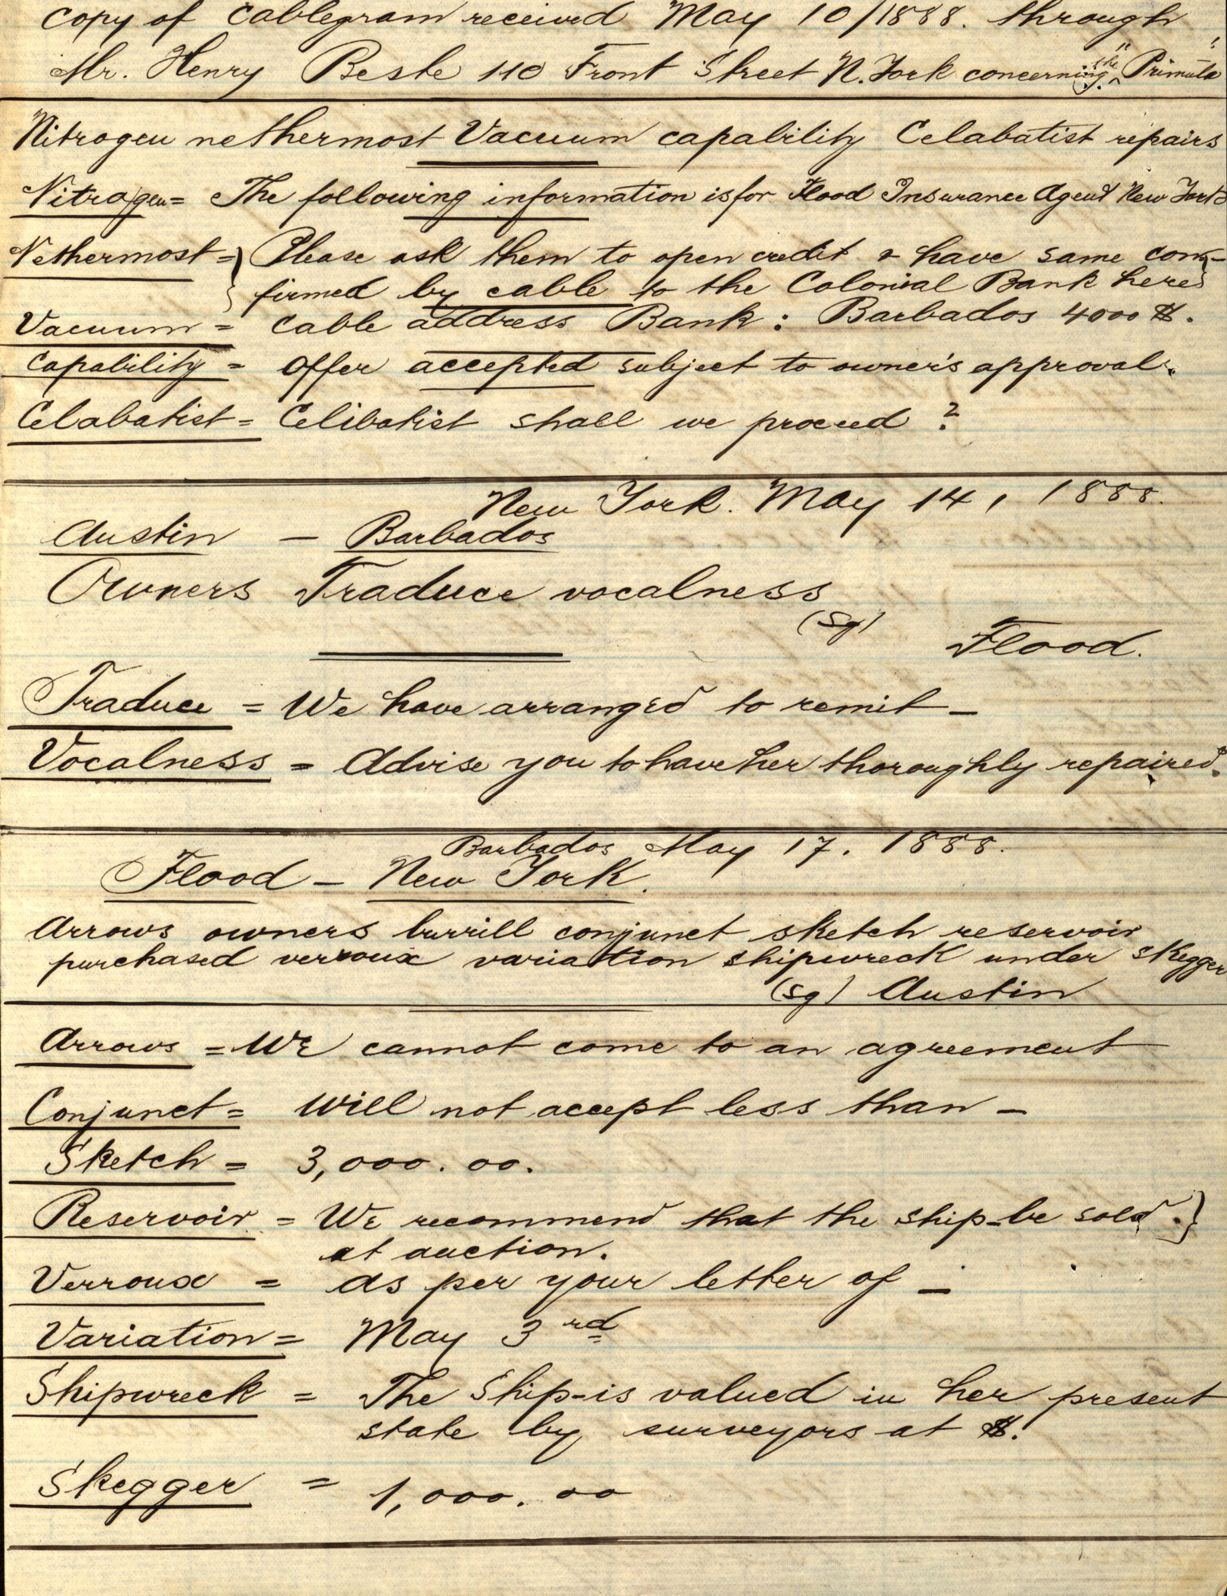 Copy of Cablegram received May 10/1888. through
Mr. Henry Beste 110 Front Street N. York concerning the "Primula"
Nitrogen nethermost Vacuum capability Celabatist repairs
Nitrogen = The following information is for Flood Insurance Agent New York
Nethermost = Please ask them to open credit & have same con-
firmed by cable to the Colonial Bank here
Vacuum = Cable address Bank: Barbados 4000 $.
Capability = Offer accepted subject to owner's approval.
Celabatist = Celibatist shall we proceed?
New York. May 14, 1888.
Austin — Barbados
Owners Traduce vocalness
(Sg) Flood.
Traduce = We have arranged to remit —
Vocalness = Advise you to have her thoroughly repaired.
Barbados May 17. 1888.
Flood — New York.
Arrows owners burrill conjunct sketch reservoir
purchased verroux variation shipwreck under skegger
(Sg) Austin
Arrows = We cannot come to an agreement
Conjunct = Will not accept less than —
Sketch = 3,000.00.
Reservoir = We recommend that the ship be sold.
at auction.
Verroux = As per your letter of —
Variation = May 3rd
Shipwreck = The Ship is valued in her present
state by surveyors at $.
Skegger = 1,000.00